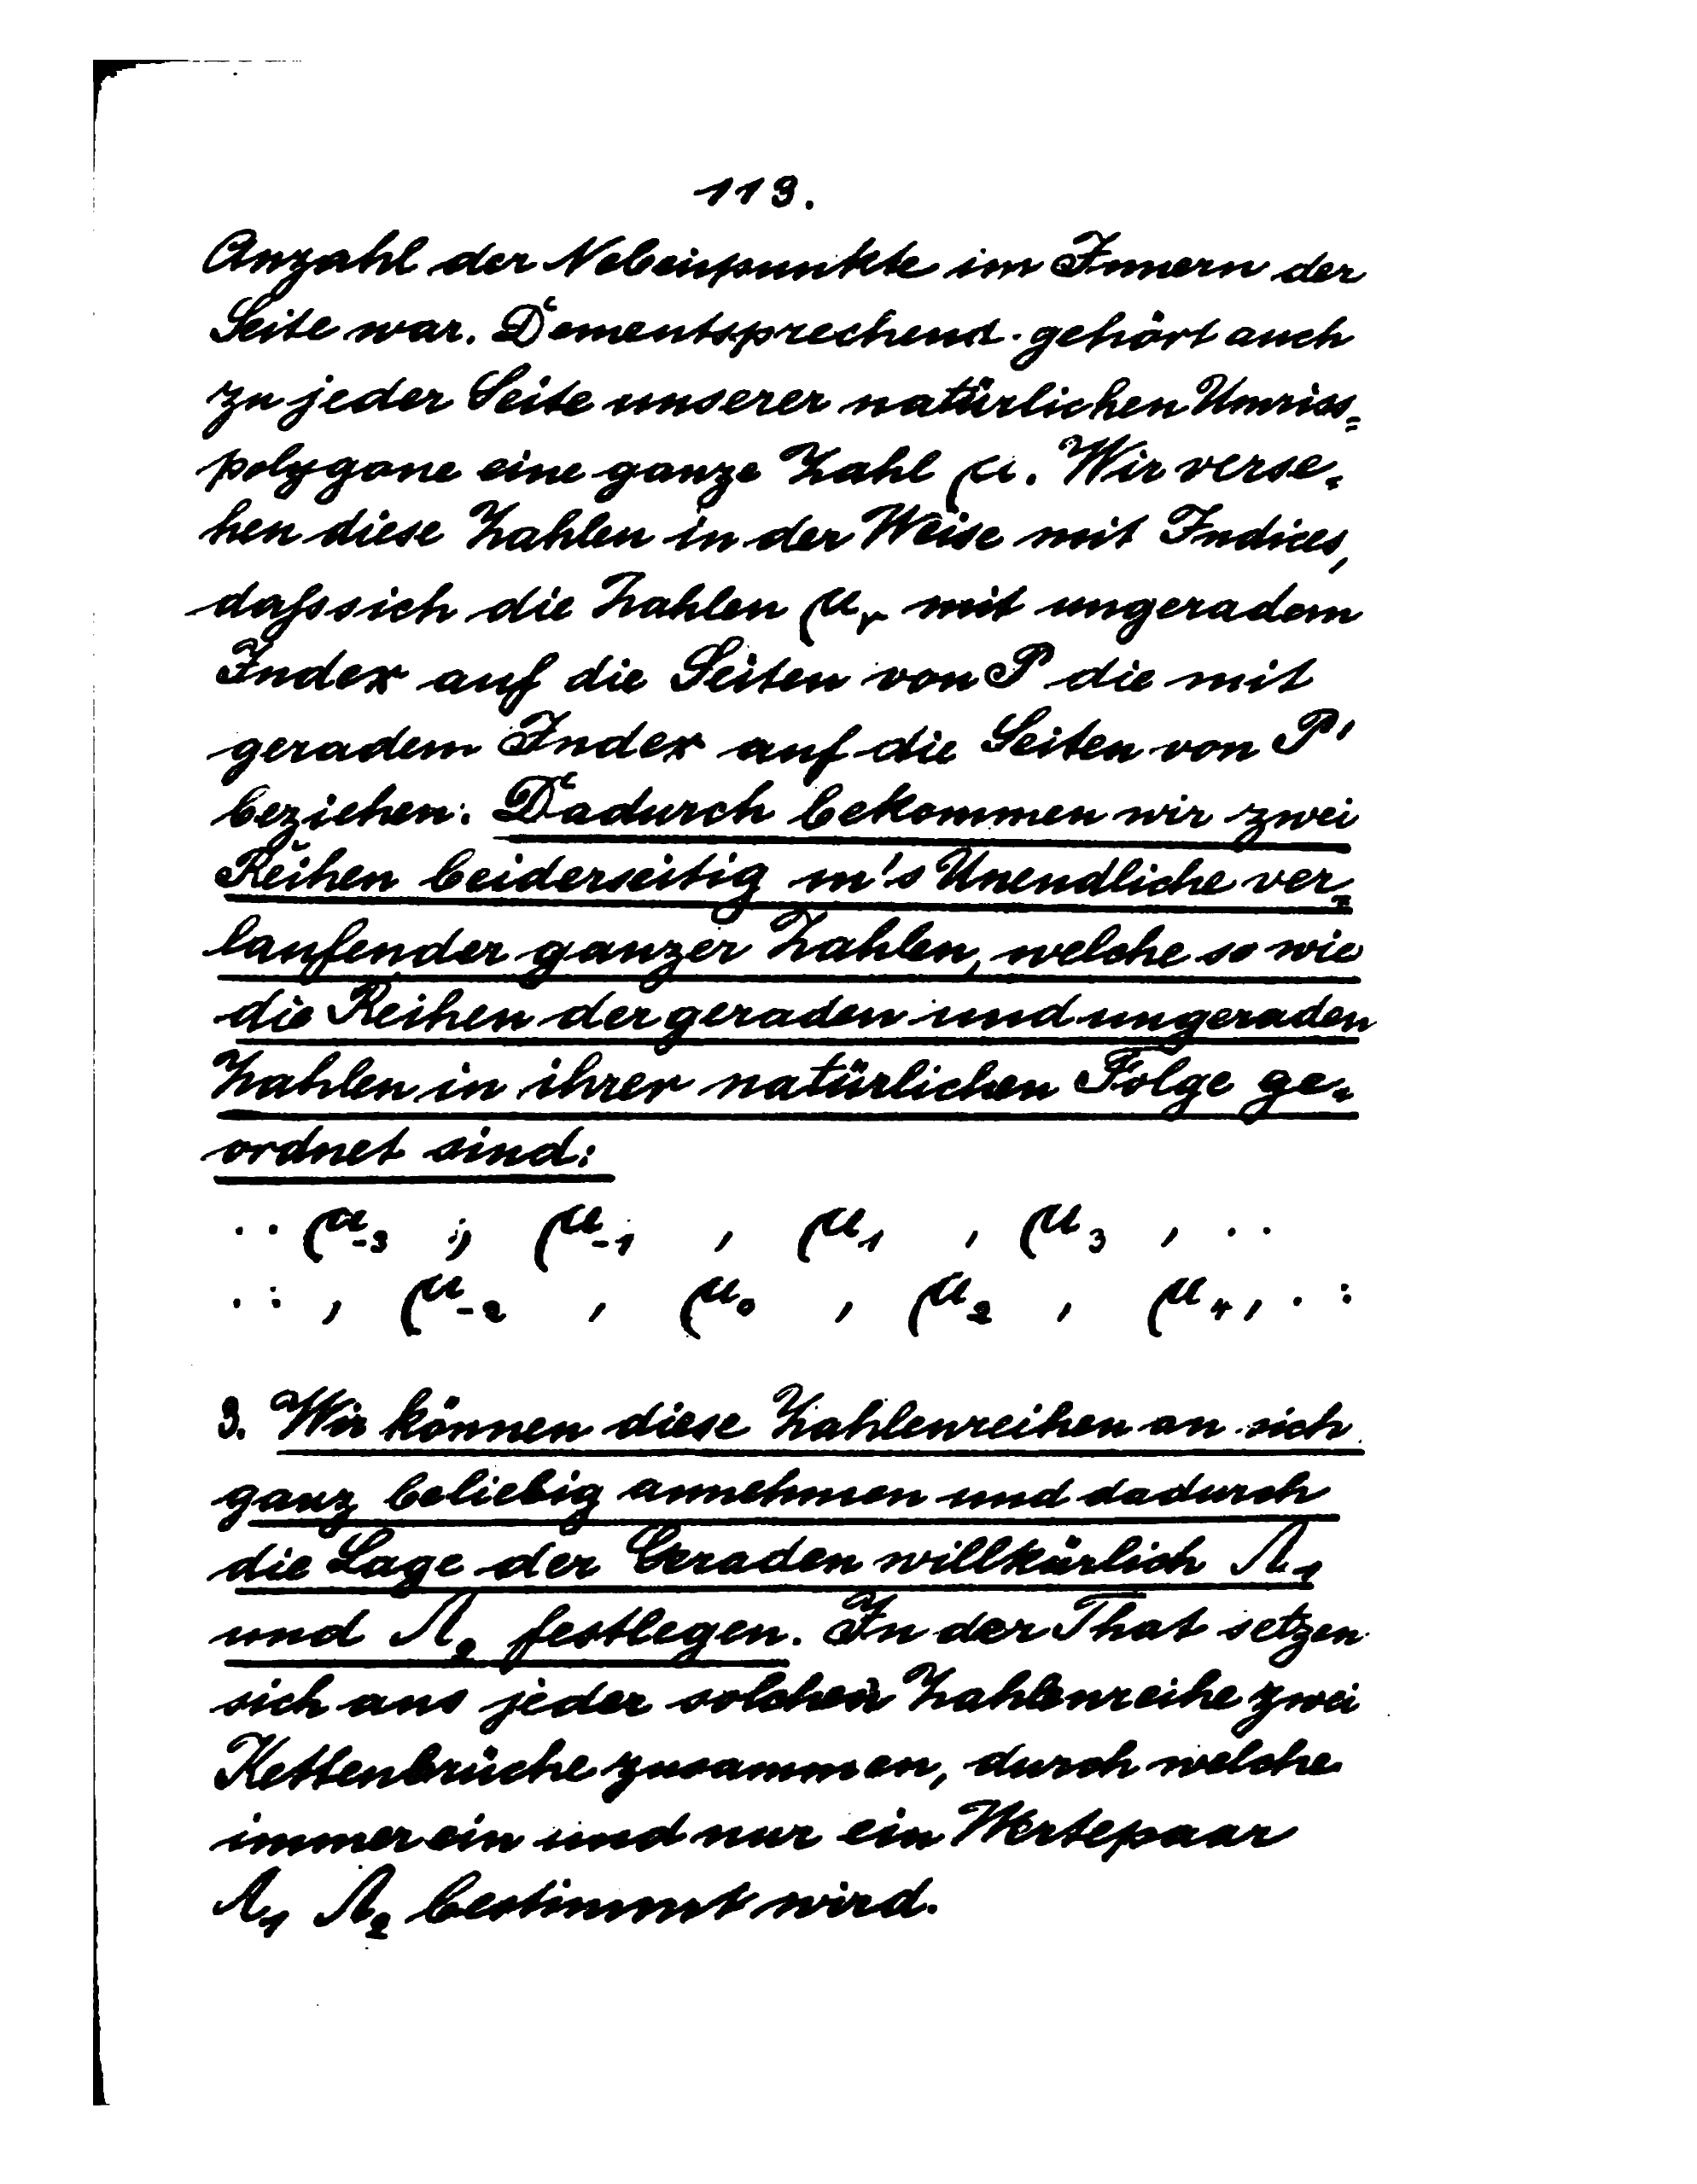 113.
Anzahl der Nebenpunkte im Innern der
Seite war. Dementsprechend gehört auch
zu jeder Seite unserer natürlichen Umriss-
polygone eine ganze Zahl μ. Wir verse-
hen diese Zahlen in der Weise mit Indices,
dass sich die Zahlen μᵣ mit ungeradem
Index auf die Seiten von P die mit
geradem Index auf die Seiten von P'
beziehen. Dadurch bekommen wir zwei
Reihen beiderseitig in's Unendliche ver-
laufender ganzer Zahlen, welche so wie
die Reihen der geraden und ungeraden
Zahlen in ihrer natürlichen Folge ge-
ordnet sind:
.. μ₋₃ , μ₋₁ , μ₁ , μ₃ , ..
.. , μ₋₂ , μ₀ , μ₂ , μ₄ , ..
3. Wir können diese Zahlenreihen an sich
ganz beliebig annehmen und dadurch
die Lage der Geraden willkürlich Λ₁
und Λ₂ festlegen. In der That setzen
sich aus jeder solchen Zahlenreihe zwei
Kettenbrüche zusammen, durch welche
immer ein und nur ein Wertepaar
Λ₁ Λ₂ bestimmt wird.